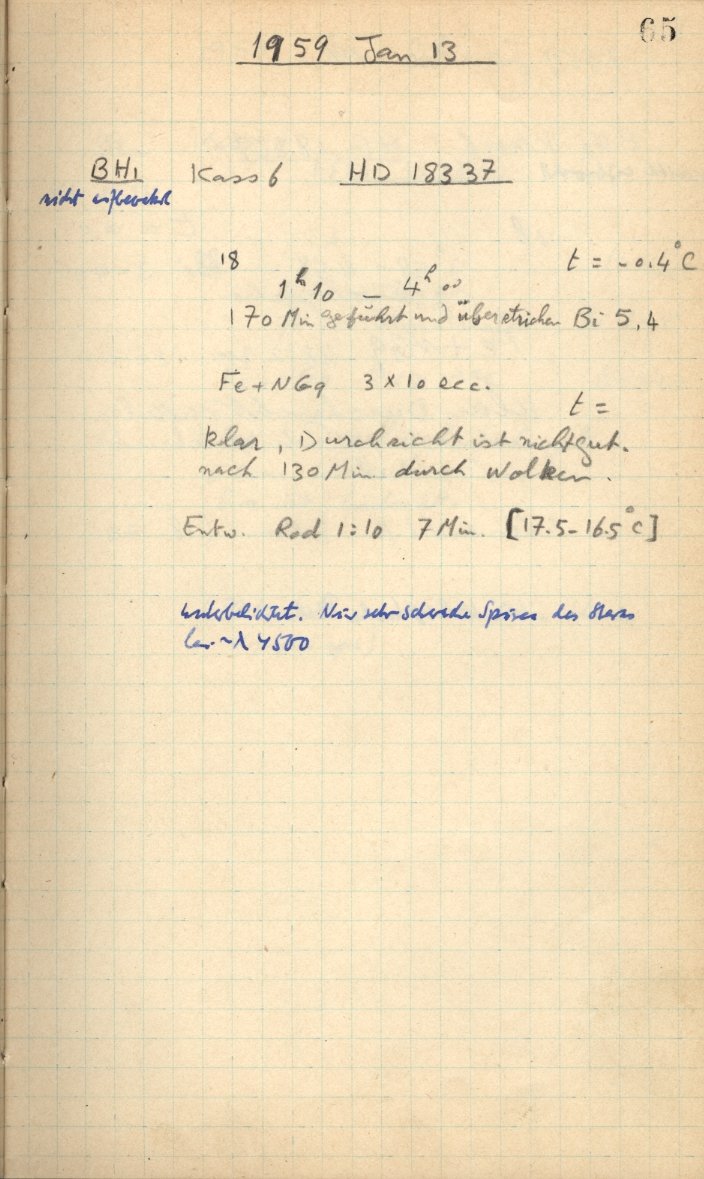 65
1959 Jan 13
BH1 Kass 6 HD 18337
nicht aufbewahrt
18 t = -0.4°C
1h 10 – 4h 00
170 Min geführt und überstrichen Bi 5,4
Fe + NGg 3 x 10 sec.
t =
klar, Durchsicht ist nicht gut.
nach 130 Min. durch Wolken.
Entw. Rod 1:10 7 Min. [17.5-16.5°C]
unterbelichtet. Nur sehr schwache Spuren des Sterns
bei ~λ 4500